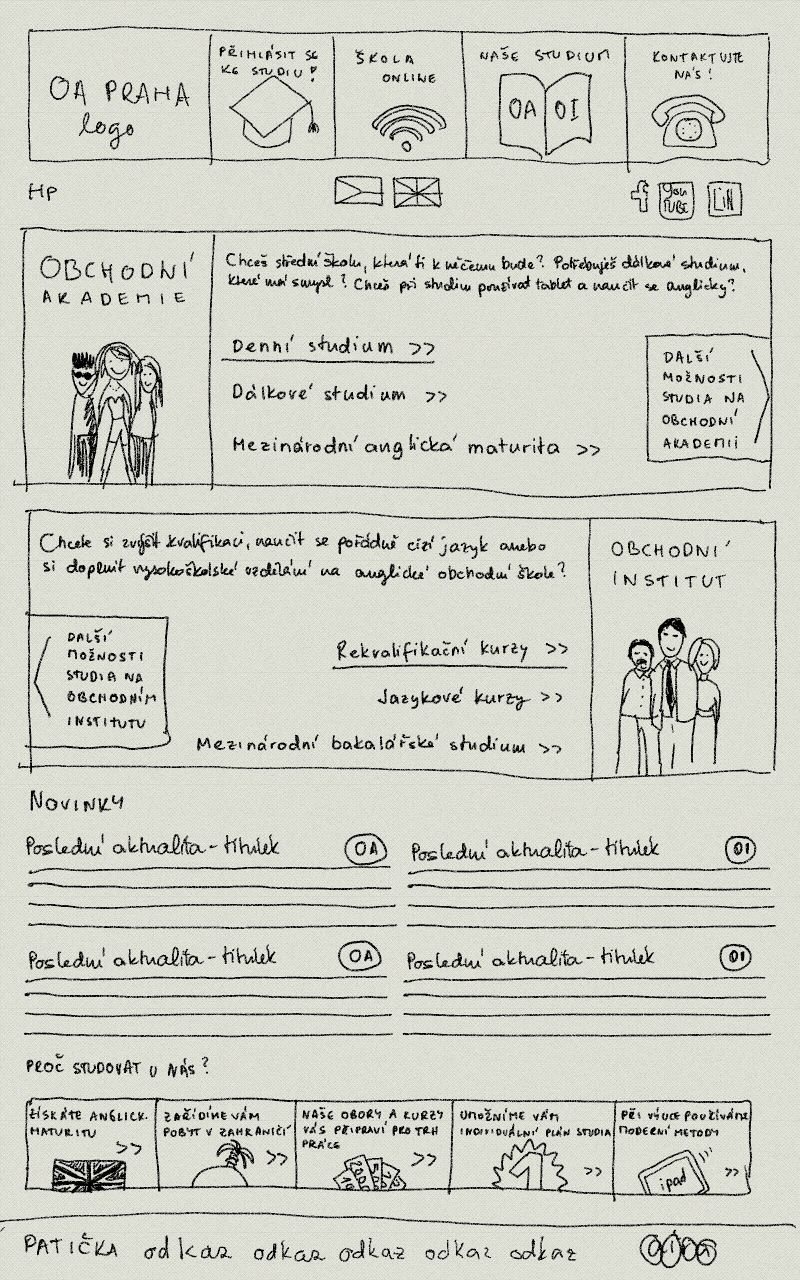 OA PRAHA
logo
PŘIHLÁSIT SE
KE STUDIU!
ŠKOLA
ONLINE
NAŠE STUDIUM
OA OI
KONTAKTUJTE
NÁS!
HP
f YOU TUBE LIN
OBCHODNÍ
AKADEMIE
Chceš střední školu, která ti k něčemu bude? Potřebuješ dálkové studium,
které má smysl? Chceš při studiu používat tablet a naučit se anglicky?
Denní studium >>
Dálkové studium >>
Mezinárodní anglická maturita >>
DALŠÍ
MOŽNOSTI
STUDIA NA
OBCHODNÍ
AKADEMII
Chcete si zvýšit kvalifikaci, naučit se pořádně cizí jazyk anebo
si doplnit vysokoškolské vzdělání na anglické obchodní škole?
OBCHODNÍ
INSTITUT
DALŠÍ
MOŽNOSTI
STUDIA NA
OBCHODNÍM
INSTITUTU
Rekvalifikační kurzy >>
Jazykové kurzy >>
Mezinárodní bakalářské studium >>
NOVINKY
Poslední aktualita - titulek OA
Poslední aktualita - titulek OI
Poslední aktualita - titulek OA
Poslední aktualita - titulek OI
PROČ STUDOVAT U NÁS?
ZÍSKÁTE ANGLICK.
MATURITU
>>
ZAŘÍDÍME VÁM
POBYT V ZAHRANIČÍ
>>
NAŠE OBORY A KURZY
VÁS PŘIPRAVÍ PRO TRH
PRÁCE
>>
UMOŽNÍME VÁM
INDIVIDUÁLNÍ PLÁN STUDIA
1 >>
PŘI VÝUCE POUŽÍVÁME
MODERNÍ METODY
ipad >>
PATIČKA odkaz odkaz odkaz odkaz odkaz